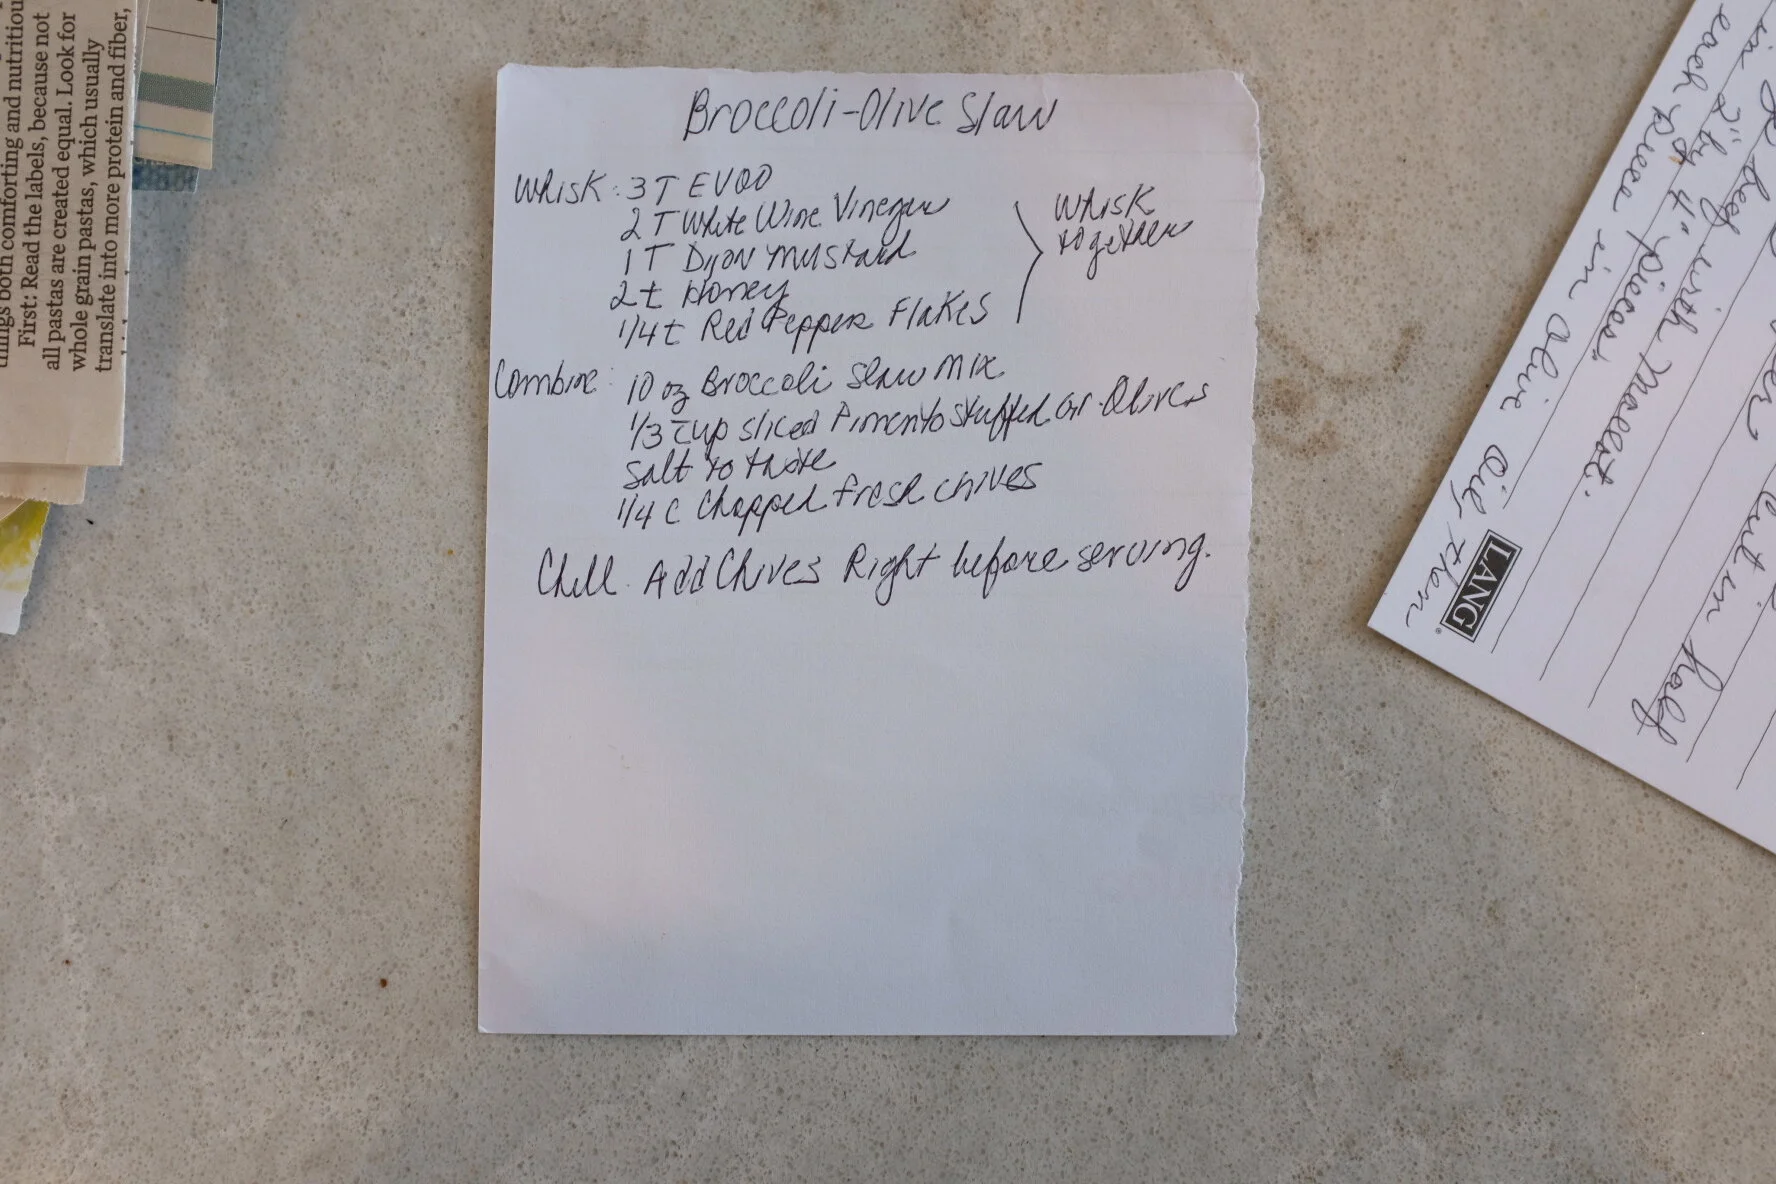 Broccoli-Olive Slaw
Whisk: 3 T EVOO
2 T White Wine Vinegar
1 T Dijon Mustard
2 t Honey
1/4 t Red Pepper Flakes
Whisk
together
Combine: 10 oz Broccoli Slaw Mix
1/3 cup sliced Pimento stuffed Gr. Olives
Salt to taste
1/4 C Chopped fresh chives
Chill. Add Chives Right before serving.
things both comforting and nutritiou
First: Read the labels, because not
all pastas are created equal. Look for
whole grain pastas, which usually
translate into more protein and fiber,
cut in half
in
beef with Mallet.
in 2" by 4" pieces.
each piece in Olive Oil, then
LANG